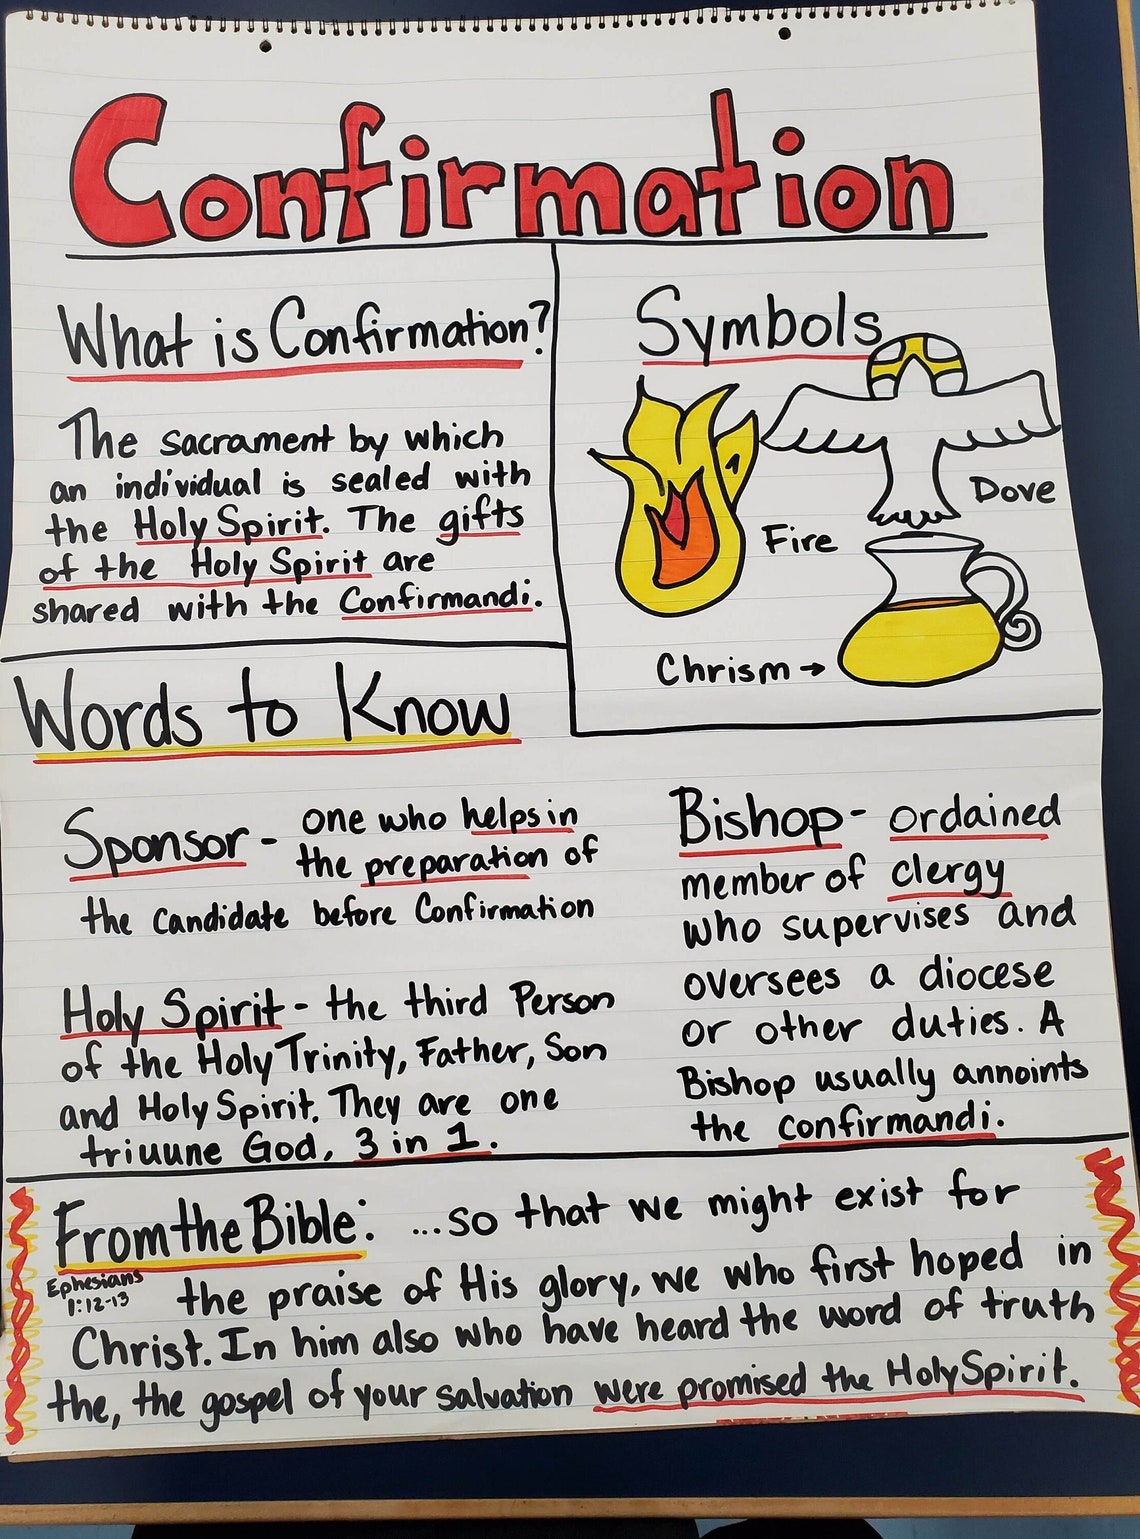 Confirmation
What is Confirmation?
The sacrament by which
an individual is sealed with
the Holy Spirit. The gifts
of the Holy Spirit are
shared with the Confirmandi.
Symbols
Dove
Fire
Chrism →
Words to Know
Sponsor - one who helps in
the preparation of
the candidate before Confirmation
Holy Spirit - the third Person
of the Holy Trinity, Father, Son
and Holy Spirit. They are one
triuune God, 3 in 1.
Bishop - ordained
member of clergy
who supervises and
oversees a diocese
or other duties. A
Bishop usually annoints
the confirmandi.
From the Bible: ...so that we might exist for
Ephesians
1:12-13
the praise of His glory, we who first hoped in
Christ. In him also who have heard the word of truth
the, the gospel of your salvation were promised the Holy Spirit.